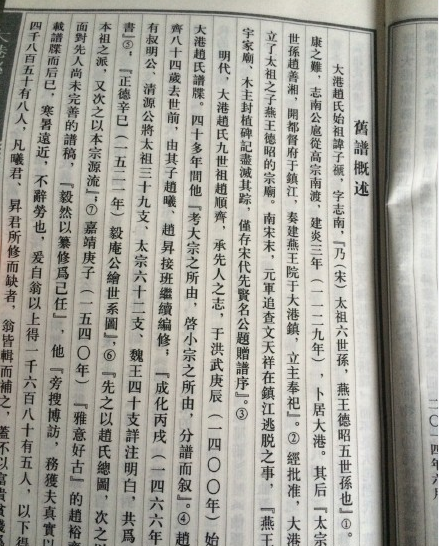 舊譜概述
大港趙氏始祖諱子禠，字志南，『乃（宋）太祖六世孫，燕王德昭五世孫也』①。
康之難，志南公扈從高宗南渡，建炎三年（一一二九年），卜居大港。其后『太宗
世孫趙善湘，開都督府于鎮江，奏建燕王院于大港鎮，立主奉祀』。②經批准，大港
立了太祖之子燕王德昭的宗廟。南宋末，元軍追查文天祥在鎮江逃脱之事，『燕王
宇家廟、木主封植碑記盡滅其踪，僅存宋代先賢名公題贈譜序』。③
明代，大港趙氏九世祖趙順齊，承先人之志，于洪武庚辰（一四〇〇年）始
大港趙氏譜牒。四十多年間他『考大宗之所由，啓小宗之所由，分譜而叙』。④趙
齊八十四歲去世前，由其子趙曦、趙昇接班繼續編修；『成化丙戌（一四六六年
有叔明公、清源公將太祖三十九支、太宗六十二支、魏王四十支詳注明白，共爲
書』⑤；『正德辛巳（一五二一年）毅庵公繪世系圖』，⑥『先之以趙氏總圖，次之以
本祖之派，又次之以本宗源流』；⑦嘉靖庚子（一五四〇年）『雅意好古』的趙裕齊
面對先人尚未完善的譜稿，『毅然以纂修爲己任』，他『旁搜博訪，務獲夫真實以
載譜牒而后已，寒暑遠近，不辭勞也。爰自翁以上得一千六百八十有五人，以下得
四千八百五十有八人，凡曦君、昇君所修而缺者，翁皆輯而補之，蓋不以富貴貧賤爲
二〇一四年六